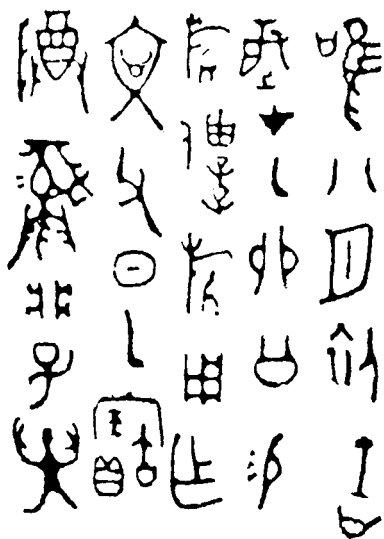 唯八月初吉
辰才乙卯公易
旂僕旂用乍
文父日乙寶
尊彝子